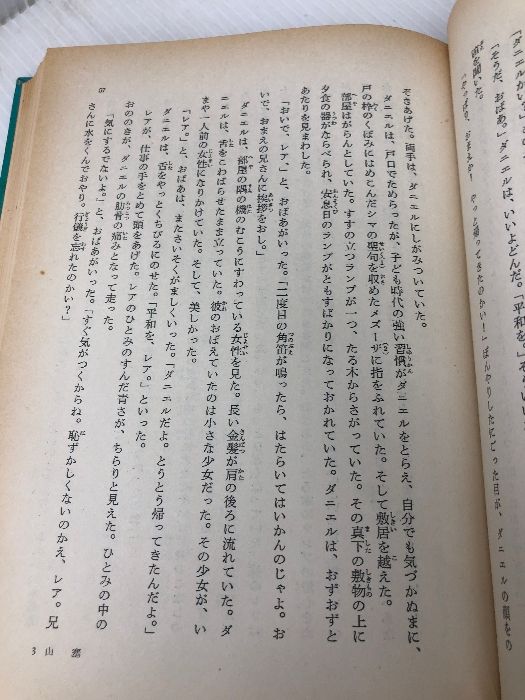 「ダニエルかい。」
「そうだ、おばあ。」ダニエルは、いいよどんだ。「平和を。」
頭を聞いた。
やっと帰ってきたのかい！」ぼんやりしたにごった目が、ダニエルの顔をの
ぞきあげた。両手は、ダニエルにしがみついていた。
ダニエルは、戸口でためらったが、子ども時代の強い習慣がダニエルをとらえ、自分でも気づかぬまに、
戸の枠のくぼみにはめこんだシマの聖句を収めたメズーザに指をふれていた。そして敷居を越えた。
部屋はがらんとしていた。すすの立つランプが一つ、たる木からさがっていた。その真下の敷物の上に
夕食の器がならべられ、安息日のランプがともすばかりになっておかれていた。ダニエルは、おずおずと
あたりを見まわした。
「おいで、レア。」と、おばあがいった。「二度目の角笛が鳴ったら、はたらいてはいかんのじゃよ。お
いで、おまえの兄さんに挨拶をおし。」
ダニエルは、部屋の隅の機のむこうにすわっている女性を見た。長い金髪が肩の後ろに流れていた。ダ
ニエルは、舌をこわばらせたまま立っていた。彼のおぼえていたのは小さな少女だった。その少女が、い
まや一人前の女性になりかけていた。そして、美しかった。
「レア。」と、おばあは、またさいそくがましくいった。「ダニエルだよ。とうとう帰ってきたんだよ。」
ダニエルは、舌をやっとくちびるにのせた。「平和を、レア。」といった。
レアが、仕事の手をとめて頭をあげた。レアのひとみのすんだ青さが、ちらりと見えた。ひとみの中の
おののきが、ダニエルの肋骨の痛みとなって走った。
「気にするでないよ。」と、おばあがいった。「すぐ気がつくからね。恥ずかしくないのかえ、レア。兄
さんに水をくんでおやり。行儀を忘れたのかい？」
57
3 山塞